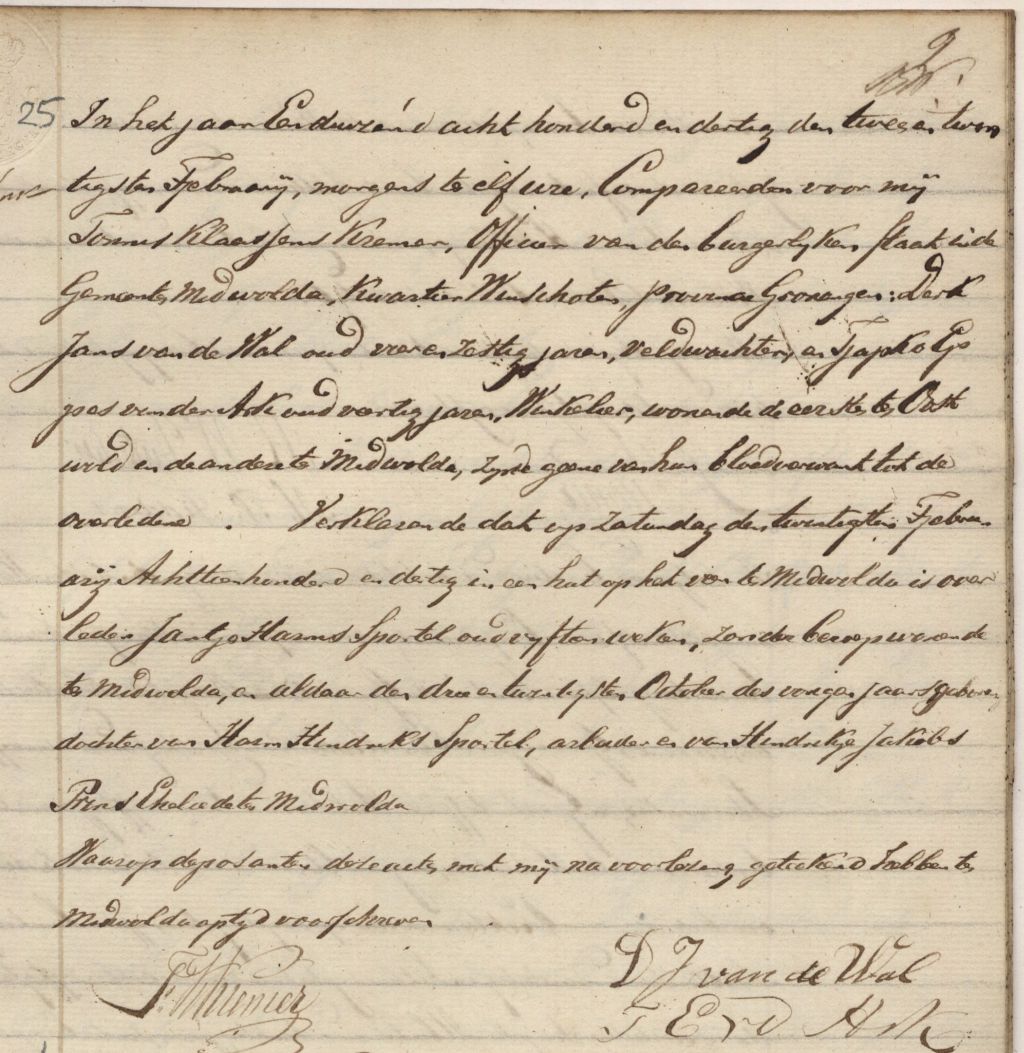 9
25 In het jaar Eenduizend acht honderd en dertig den twee en twin
tigsten Fjebruarij, morgens te elf ure, Compareerden voor mij
Tonnis Klaassens Kremer, Officier van den burgerlyken staat in de
Gemeente Midwolda, Kwartier Winschoten, provincie Groningen: Derk
Jans van de Wal oud vier en zestig jaren, veldwachter, en Tjapko Ep
pes van der Ark oud veertig jaren, Winkelier, wonende de eerste te Oost
wold en de andere te Midwolda, zynde geene van hun bloedverwant tot de
overledene . Verklarende dat op Zaturdag den twintigsten Fjebru
arij Achttienhonderd en dertig in een hut op het veen te Midwolda is over
leden Jantje Harms Sportel oud vyftien weken, zonder beroep wonende
te Midwolda, en aldaar den drie en twintigsten October des vorigen jaars geboren
dochter van Harm Hendriks Sportel, arbeider en van Hendrikje Jakobs
Prins Eheliede te Midwolda
Waarop deposanten deze acte met mij na voorlezing getekend hebben te
Midwolda op tyd voorschreven
D J van de Wal
T. K. Kremer
T E v d Ark